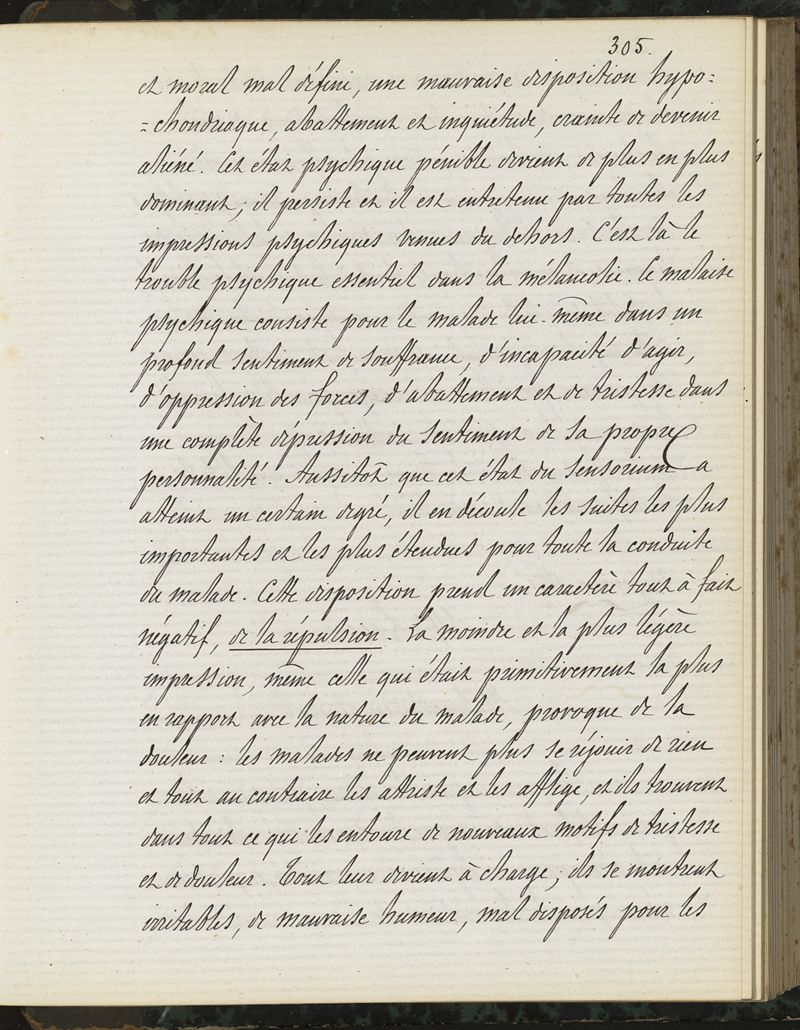 305.
et moral mal défini, une mauvaise disposition hypo=
=chondriaque, abattement et inquiétude, crainte de devenir
aliéné. Cet état psychique pénible devient de plus en plus
dominant; il persiste et il est entretenu par toutes les
impressions psychiques venues du dehors. C'est là le
trouble psychique essentiel dans la mélancolie. Ce malaise
psychique consiste pour le malade lui-même dans un
profond sentiment de souffrance, d'incapacité d'agir,
d'oppression des forces, d'abattement et de tristesse dans
une complète dépression du sentiment de sa propre
personnalité. Aussitôt que cet état du sensorium a
atteint un certain degré, il en découle les suites les plus
importantes et les plus étendues pour toute la conduite
du malade. Cette disposition prend un caractère tout à fait
négatif, de la répulsion. La moindre et la plus légère
impression, même celle qui était primitivement la plus
en rapport avec la nature du malade, provoque de la
douleur: les malades ne peuvent plus se réjouir de rien
et tout au contraire les attriste et les afflige, et ils trouvent
dans tout ce qui les entoure de nouveaux motifs de tristesse
et de douleur. Tout leur devient à charge; ils se montrent
irritables, de mauvaise humeur, mal disposés pour les